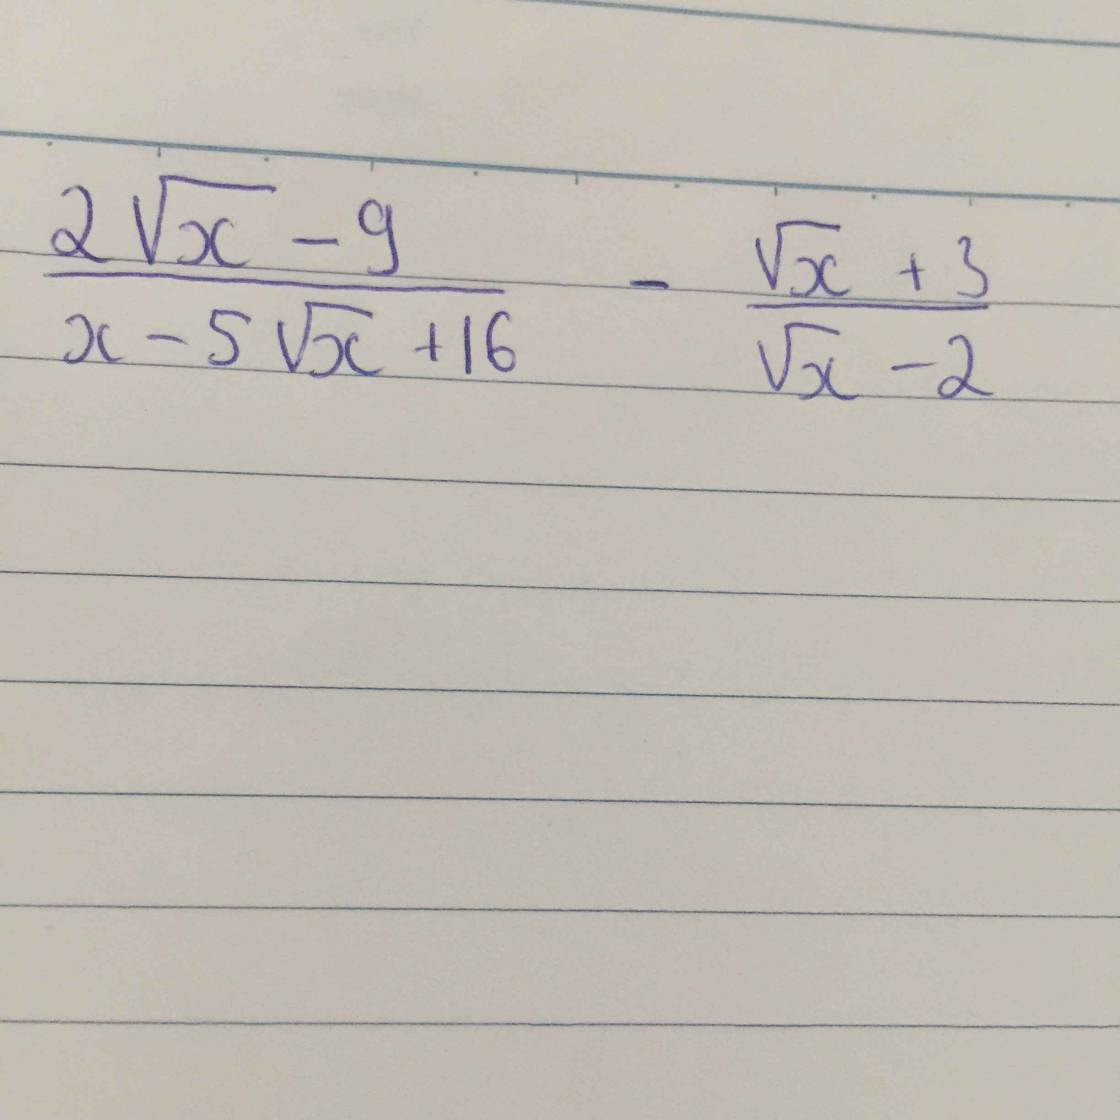 2√x - 9 / x - 5√x + 16 - √x + 3 / √x - 2